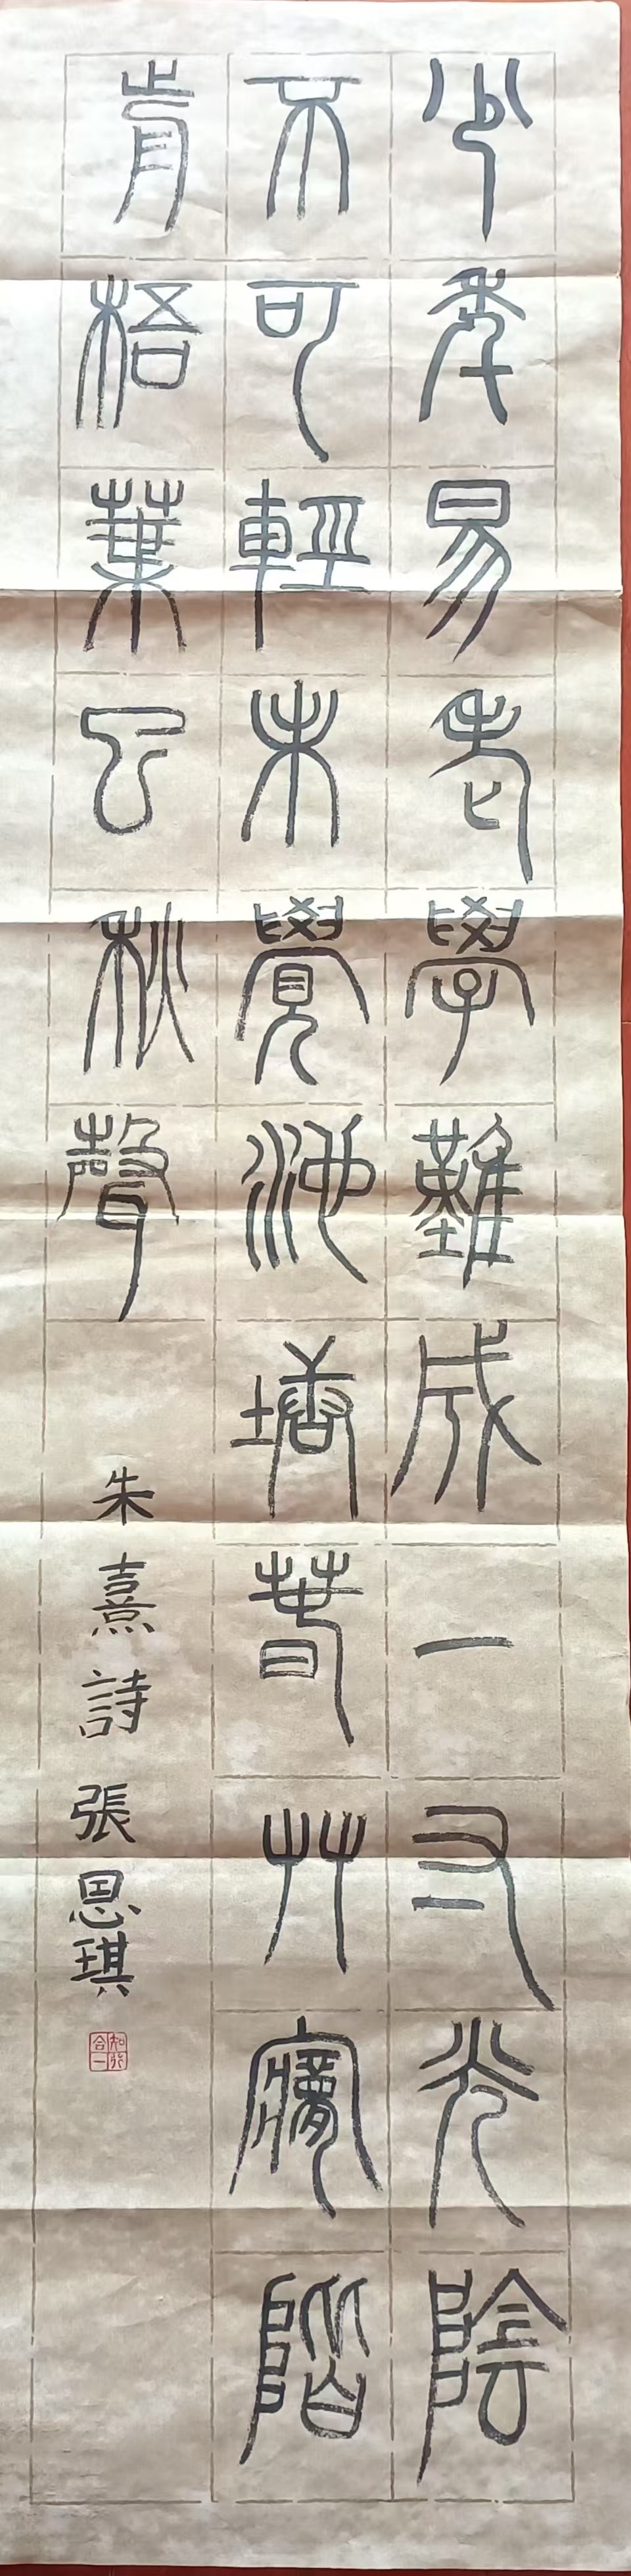 少年易老學難成一寸光陰
不可輕未覺池塘春艸夢階
前梧葉已秋聲
朱熹詩 張恩琪
知行合一